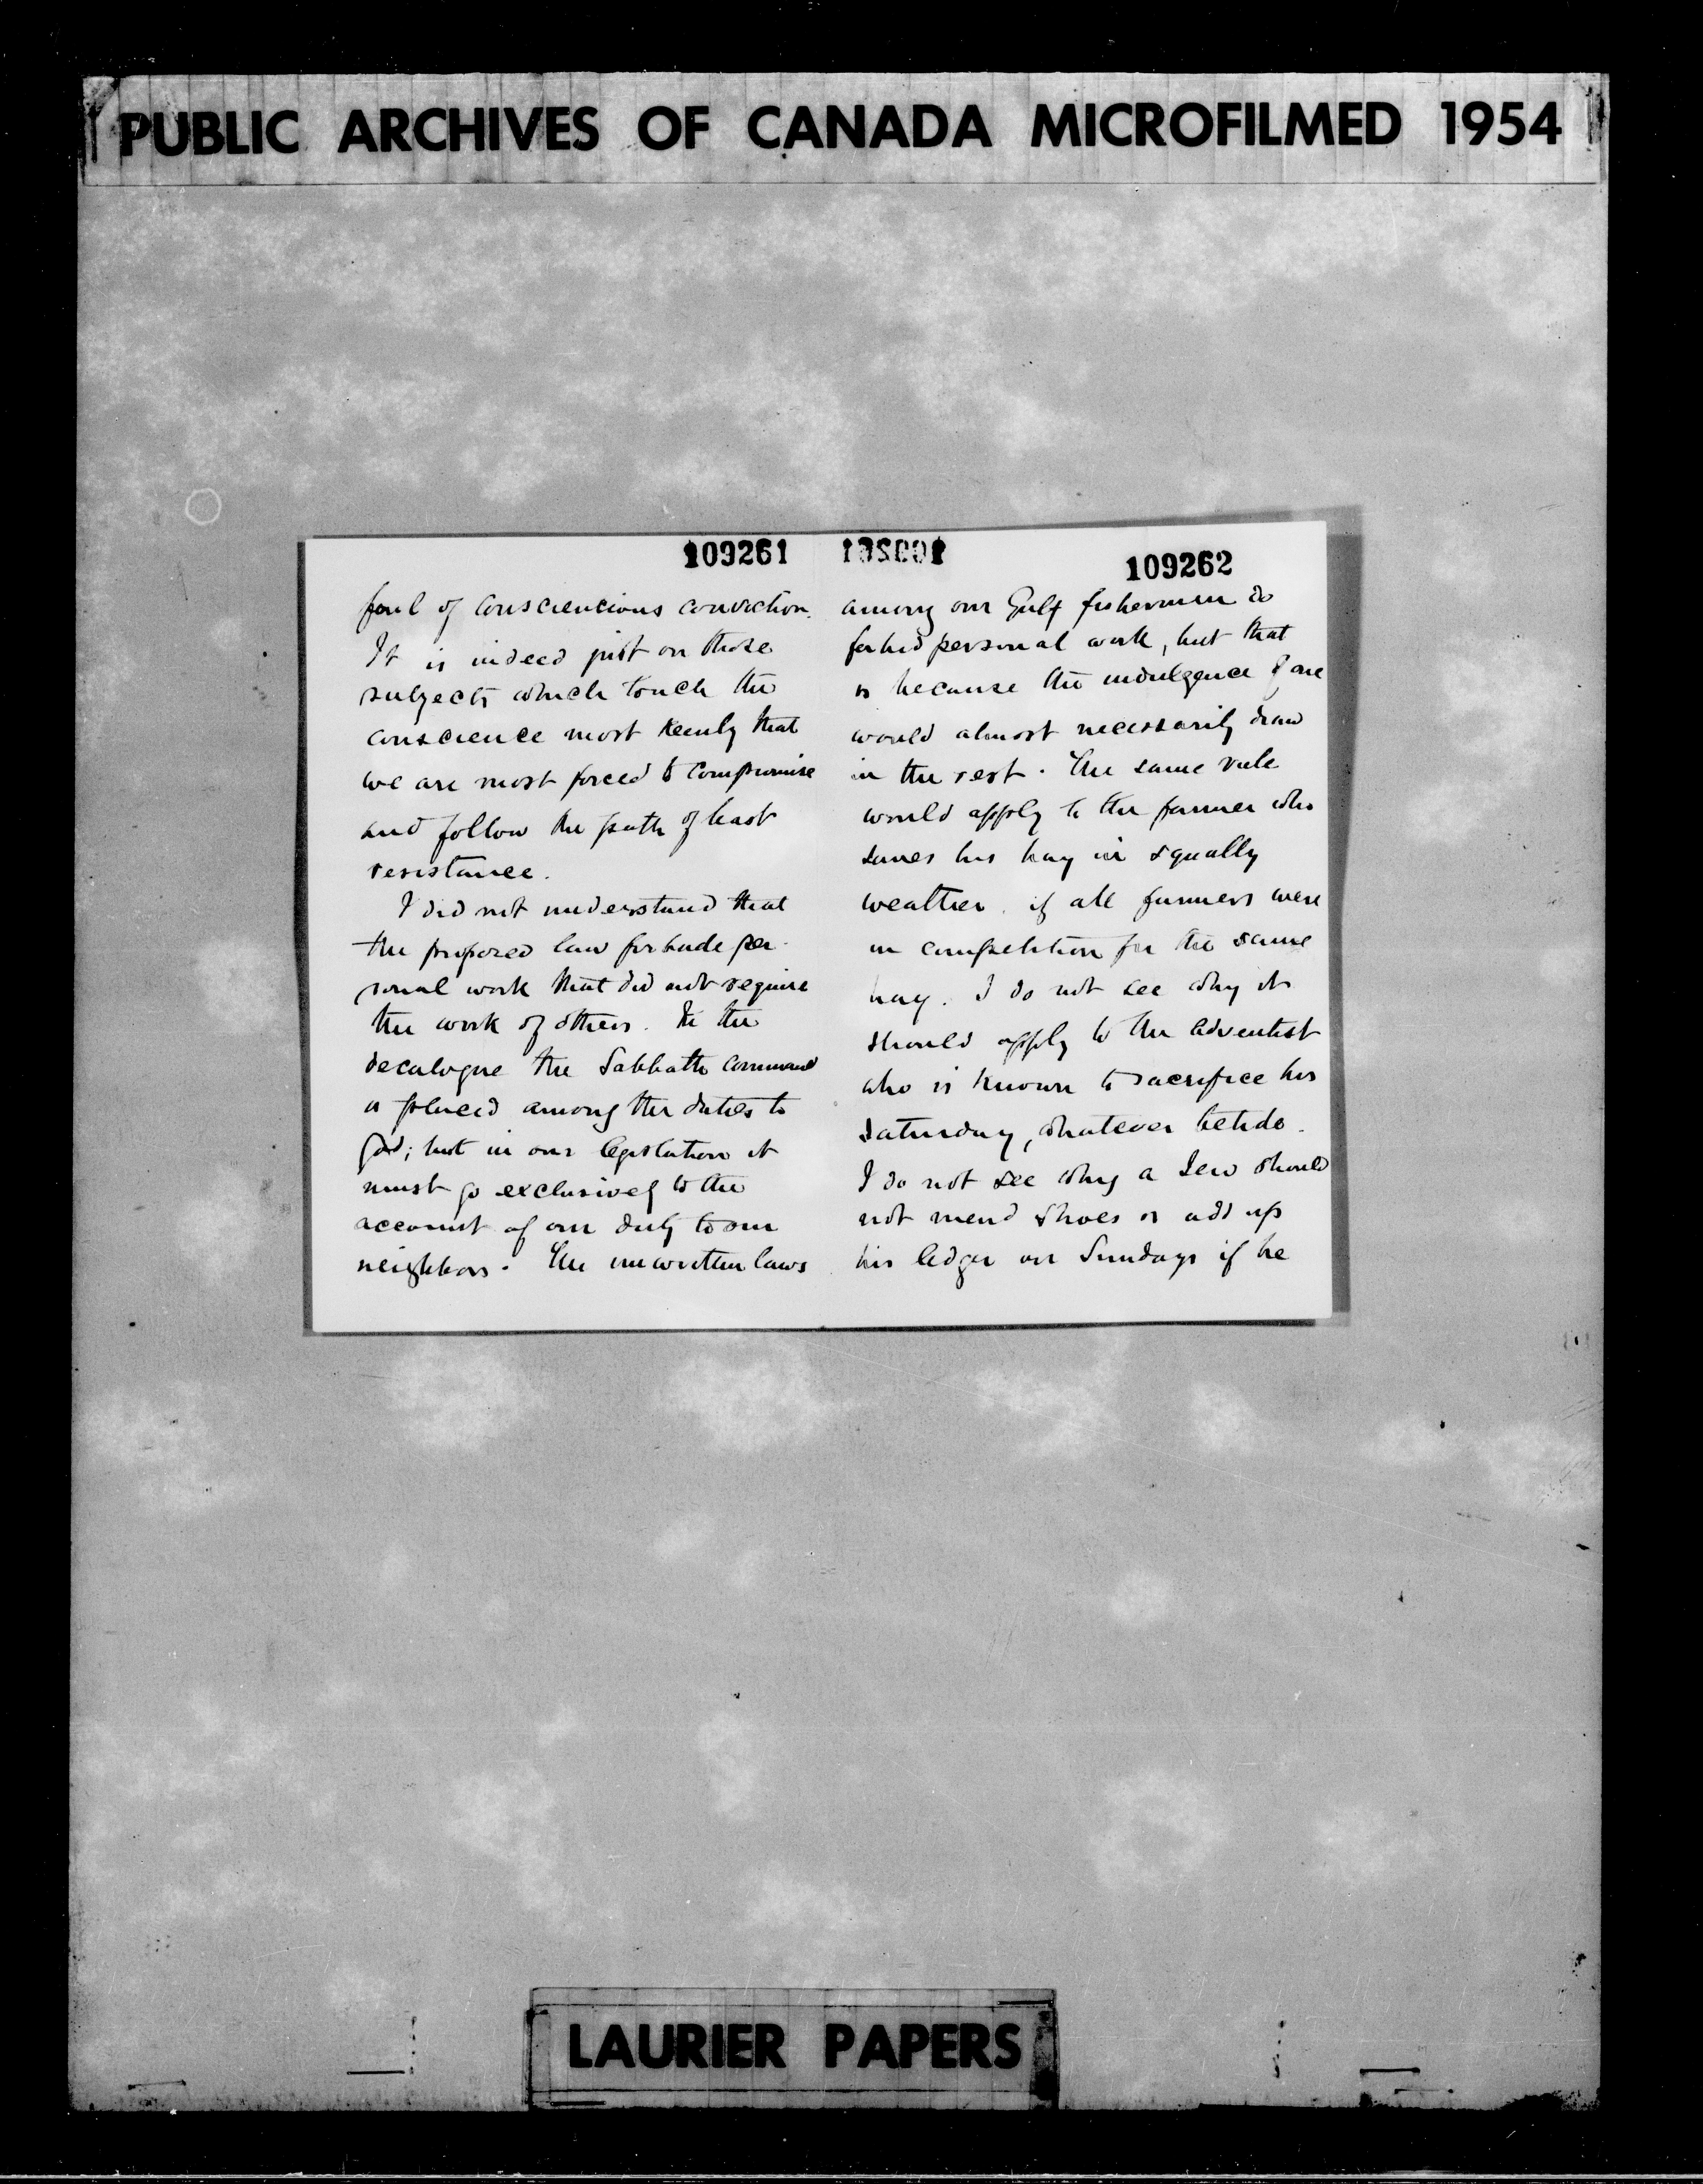 PUBLIC ARCHIVES OF CANADA MICROFILMED 1954
109261
foul of consciencious conviction.
It is indeed just on those
subjects which touch the
conscience most keenly that
we are most forced to compromise
and follow the path of least
resistance.
I did not understand that
the proposed law forbade per-
sonal work that did not require
the work of others. In the
decalogue the Sabbath command
is placed among the duties to
God; but in our legislation it
must go exclusively to the
account of our duty to our
neighbors. The unwritten laws
109262
among our Gulf fishermen do
forbid personal work, but that
is because the indulgence of one
would almost necessarily draw
in the rest. The same rule
would apply to the farmer who
saves his hay in squally
weather, if all farmers were
in competition for the same
hay. I do not see why it
should apply to the adventist
who is known to sacrifice his
saturday, whatever betide.
I do not see why a Jew should
not mend shoes or add up
his ledger on Sundays if he
LAURIER PAPERS